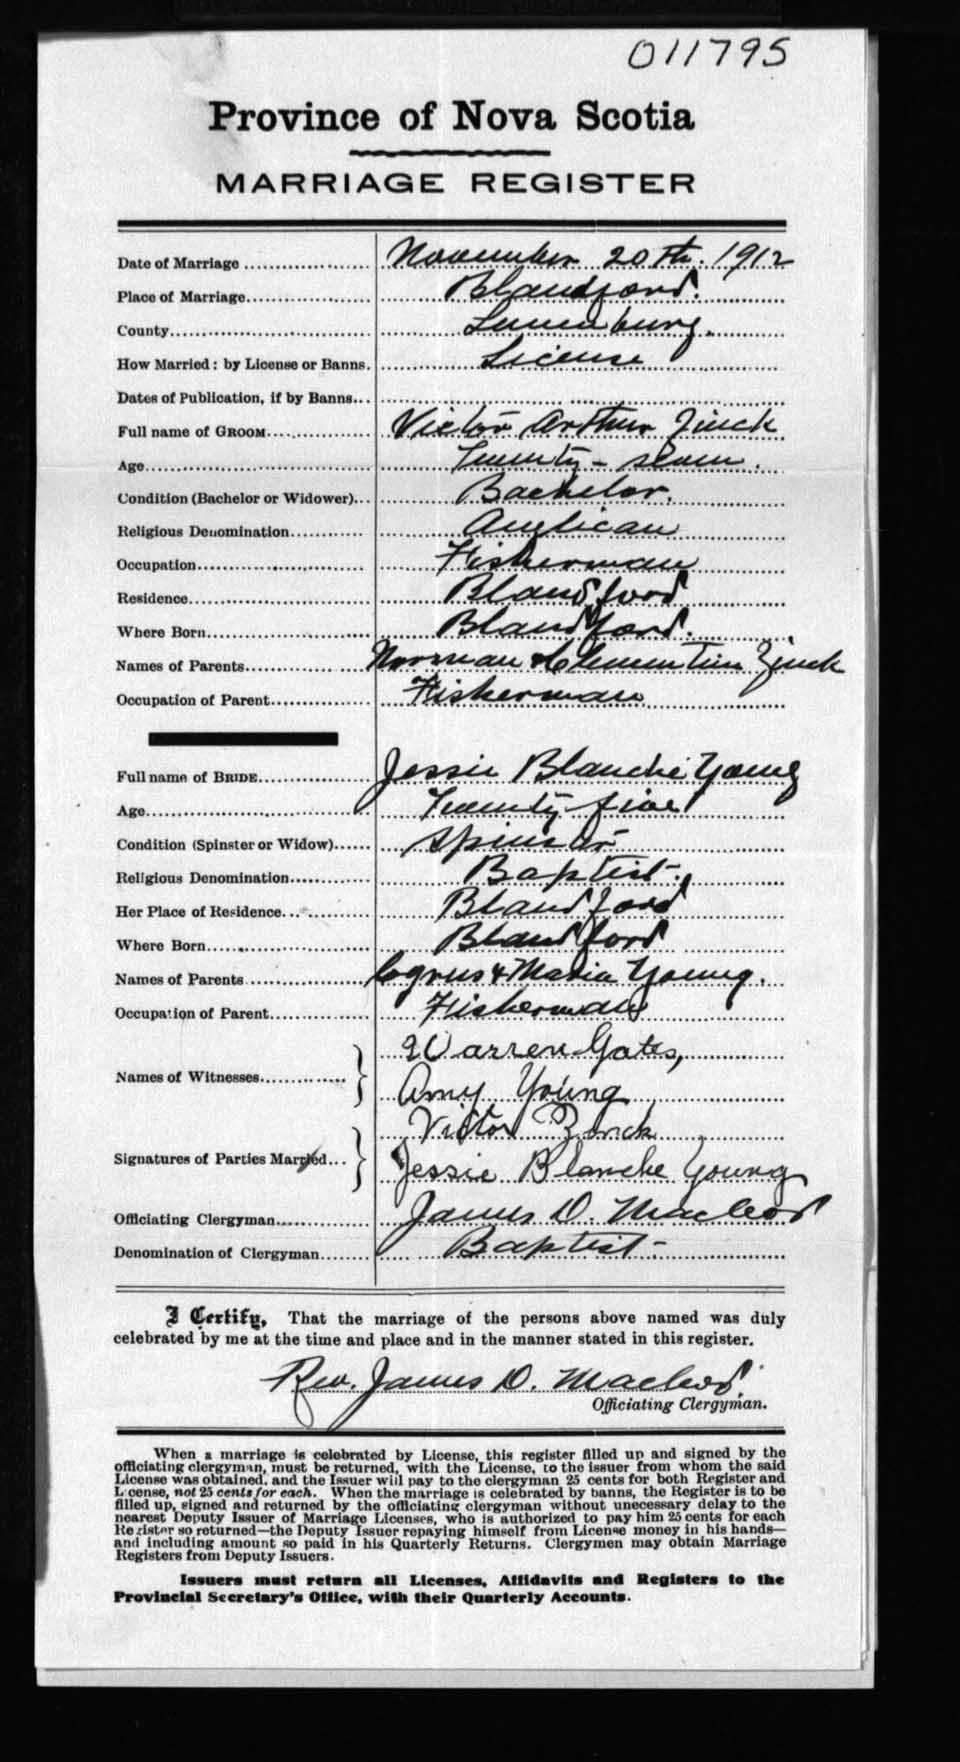 011795
Province of Nova Scotia
MARRIAGE REGISTER
Date of Marriage November 20th. 1912
Place of Marriage Blandford.
County Lunenburg.
How Married: by License or Banns. License
Dates of Publication, if by Banns
Full name of GROOM Victor Arthur Zinck
Age Twenty-seven.
Condition (Bachelor or Widower) Bachelor.
Religious Denomination Anglican
Occupation Fisherman
Residence Blandford
Where Born Blandford.
Names of Parents Norman & Clementine Zinck
Occupation of Parent Fisherman
Full name of BRIDE Jessie Blanche Young
Age Twenty five
Condition (Spinster or Widow) Spinster
Religious Denomination Baptist.
Her Place of Residence Blandford
Where Born Blandford
Names of Parents Cyrus & Maria Young.
Occupation of Parent Fisherman
Names of Witnesses Warren Gates,
Amy Young
Signatures of Parties Married Victor Zinck
Jessie Blanche Young
Officiating Clergyman James D. Macleod
Denomination of Clergyman Baptist
I Certify, That the marriage of the persons above named was duly
celebrated by me at the time and place and in the manner stated in this register.
Rev. James D. Macleod.
Officiating Clergyman.
When a marriage is celebrated by License, this register filled up and signed by the
officiating clergyman, must be returned, with the License, to the issuer from whom the said
License was obtained, and the Issuer will pay to the clergyman 25 cents for both Register and
License, not 25 cents for each. When the marriage is celebrated by banns, the Register is to be
filled up, signed and returned by the officiating clergyman without unnecessary delay to the
nearest Deputy Issuer of Marriage Licenses, who is authorized to pay him 25 cents for each
Register so returned—the Deputy Issuer repaying himself from License money in his hands—
and including amount so paid in his Quarterly Returns. Clergymen may obtain Marriage
Registers from Deputy Issuers.
Issuers must return all Licenses, Affidavits and Registers to the
Provincial Secretary's Office, with their Quarterly Accounts.